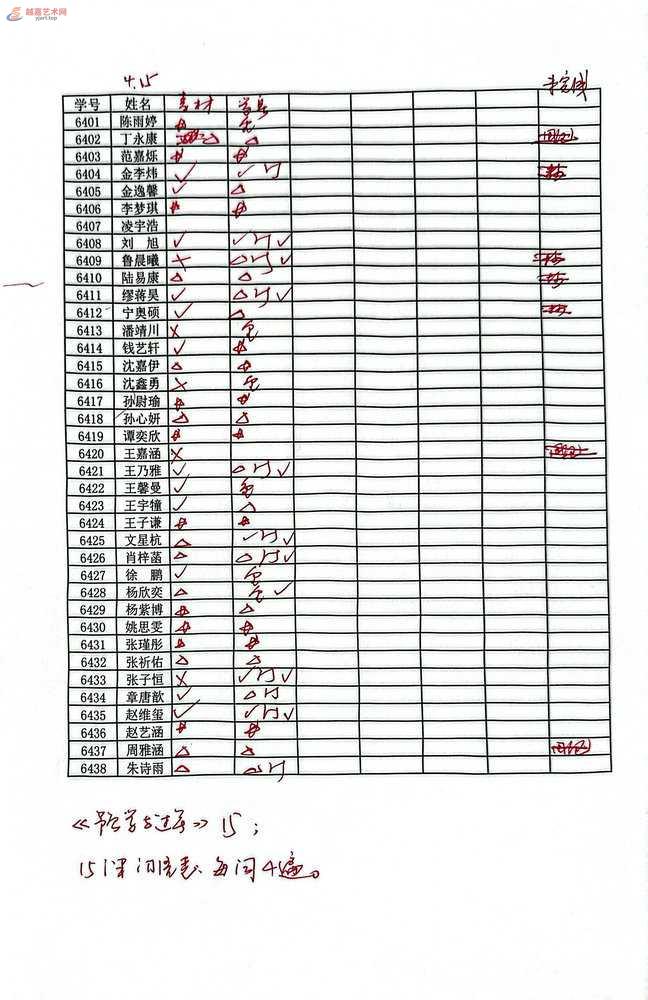 越嘉艺术网
yjart.top
4.15
未完成
学号 姓名 素材
6401 陈雨婷
6402 丁永康
6403 范嘉烁
6404 金李炜 ✓ ✓ 订
6405 金逸馨 ✓ △
6406 李梦琪
6407 凌宇浩
6408 刘旭 ✓ ✓ 订 ✓
6409 鲁晨曦 × △ 订 ✓
6410 陆易康 △ △
6411 缪蒋昊 ✓ △ 订 ✓
6412 宁奥硕 ✓ △
6413 潘靖川 ×
6414 钱艺轩 ✓
6415 沈嘉伊 △
6416 沈鑫勇 ×
6417 孙尉瑜
6418 孙心妍 △ △
6419 谭奕欣
6420 王嘉涵 ×
6421 王乃雅 ✓ △ 订 ✓
6422 王馨曼 ✓
6423 王宇犝 ✓ △
6424 王子谦
6425 文星杭 △ ✓ 订 ✓
6426 肖梓菡 △ △ 订 ✓
6427 徐鹏 ✓
6428 杨欣奕 △ ✓
6429 杨紫博 △
6430 姚思雯
6431 张瑾彤
6432 张祈佑 △ △
6433 张子恒 × ✓ 订 ✓
6434 章唐歆 ✓ △ 订
6435 赵维玺 ✓ ✓ 订 ✓
6436 赵艺涵
6437 周雅涵 △ △
6438 朱诗雨 △ △ 订
15；
15课 词语表 每词4遍。